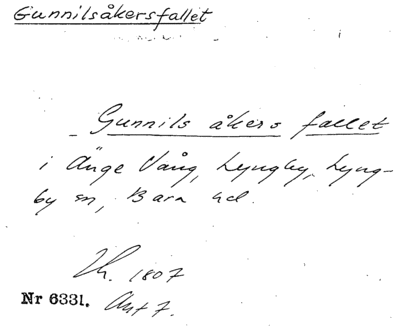 Gunnilsåkersfallet
Gunnils åkers fallet
i Änge Vång, Lyngby, Lyng-
by sn, Bara hd.
1807
Nr 6331. Akt 7.